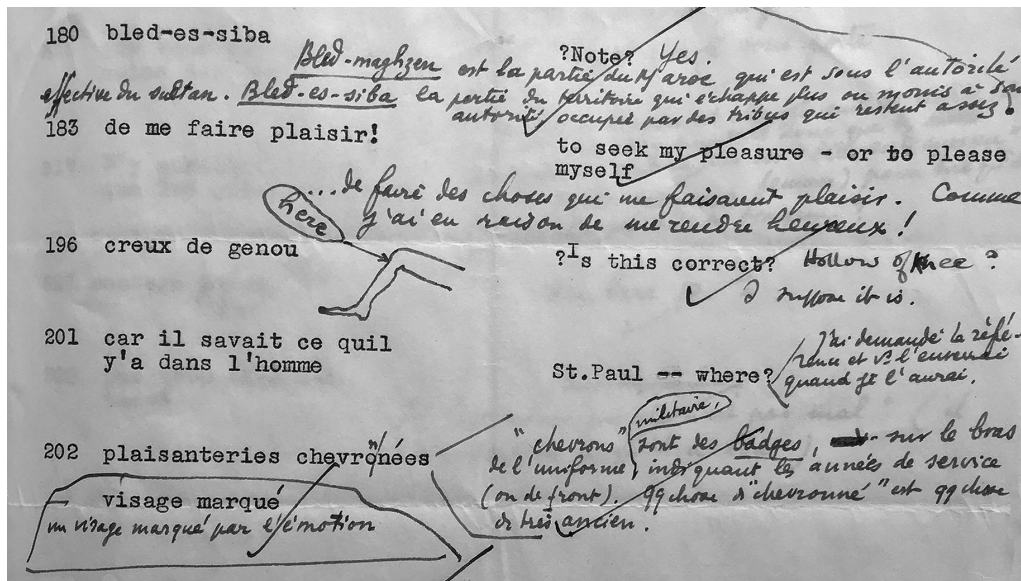 180 bled-es-siba
?Note? Yes.
Bled-maghzen est la partie du Maroc qui est sous l'autorité
effective du sultan. Bled-es-siba la partie du territoire qui échappe plus ou moins à son
autorité, occupée par des tribus qui restent assez
183 de me faire plaisir!
to seek my pleasure - or to please
myself
...de faire des choses qui me faisaient plaisir. Comme
j'ai eu raison de me rendre heureux!
here
196 creux de genou
?Is this correct? Hollow of Knee?
I suppose it is.
201 car il savait ce quil
y'a dans l'homme
St.Paul -- where?
J'ai demandé la référence
et vs l'enverrai
quand je l'aurai.
202 plaisanteries chevronnées
"chevrons" sont des badges, sur le bras
militaire,
de l'uniforme indiquant les années de service
(ou de front). qq chose d "chevronné" est qq chose
de très ancien.
visage marqué
un visage marqué par l'émotion